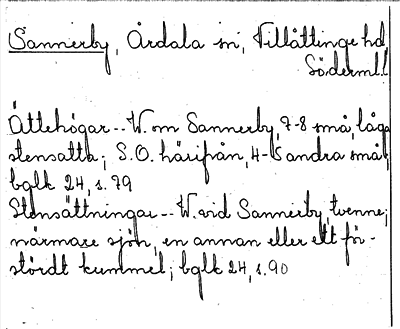 Sannerby, Årdala sn, Villåttinge hd,
Söderml.
Ättehögar -- W. om Sannerby, 7-8 små, låga,
stensatta; S.O. härifrån, 4-5 andra små;
bglk 24, s. 79
Stensättningar -- W. vid Sannerby, tvenne;
närmare sjön, en annan eller ett för-
stördt kummel; bglk 24, s. 90